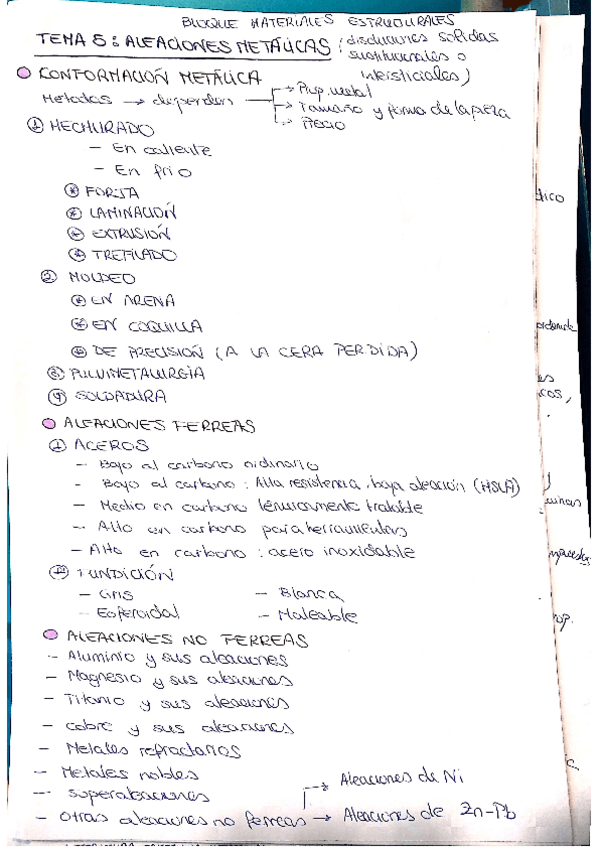 BLOQUE MATERIALES ESTRUCTURALES
TEMA 5: ALEACIONES METÁLICAS (disoluciones solidas
sustitucionales o
intersticiales)
CONFORMACIÓN METÁLICA
Metodos → dependen → Prop. metal
→ Tamaño y forma de la pieza
→ Precio
① HECHURADO
- En caliente
- En frio
* FORJA
* LAMINACIÓN
* EXTRUSIÓN
* TREFILADO
② MOLDEO
* EN ARENA
* EN COQUILLA
* DE PRECISIÓN (A LA CERA PERDIDA)
③ PULVIMETALURGIA
④ SOLDADURA
ALEACIONES FERREAS
① ACEROS
- Bajo al carbono ordinario
- Bajo al carbono: Alta resistencia, baja aleación (HSLA)
- Medio en carbono térmicamente tratable
- Alto en carbono para herramientas
- Alto en carbono: acero inoxidable
② FUNDICIÓN
- Gris - Blanca
- Esferoidal - Maleable
ALEACIONES NO FERREAS
- Aluminio y sus aleaciones
- Magnesio y sus aleaciones
- Titanio y sus aleaciones
- Cobre y sus aleaciones
- Metales refractarios
- Metales nobles
- Superaleaciones
→ Aleaciones de Ni
- Otras aleaciones no ferreas → Aleaciones de Zn-Pb